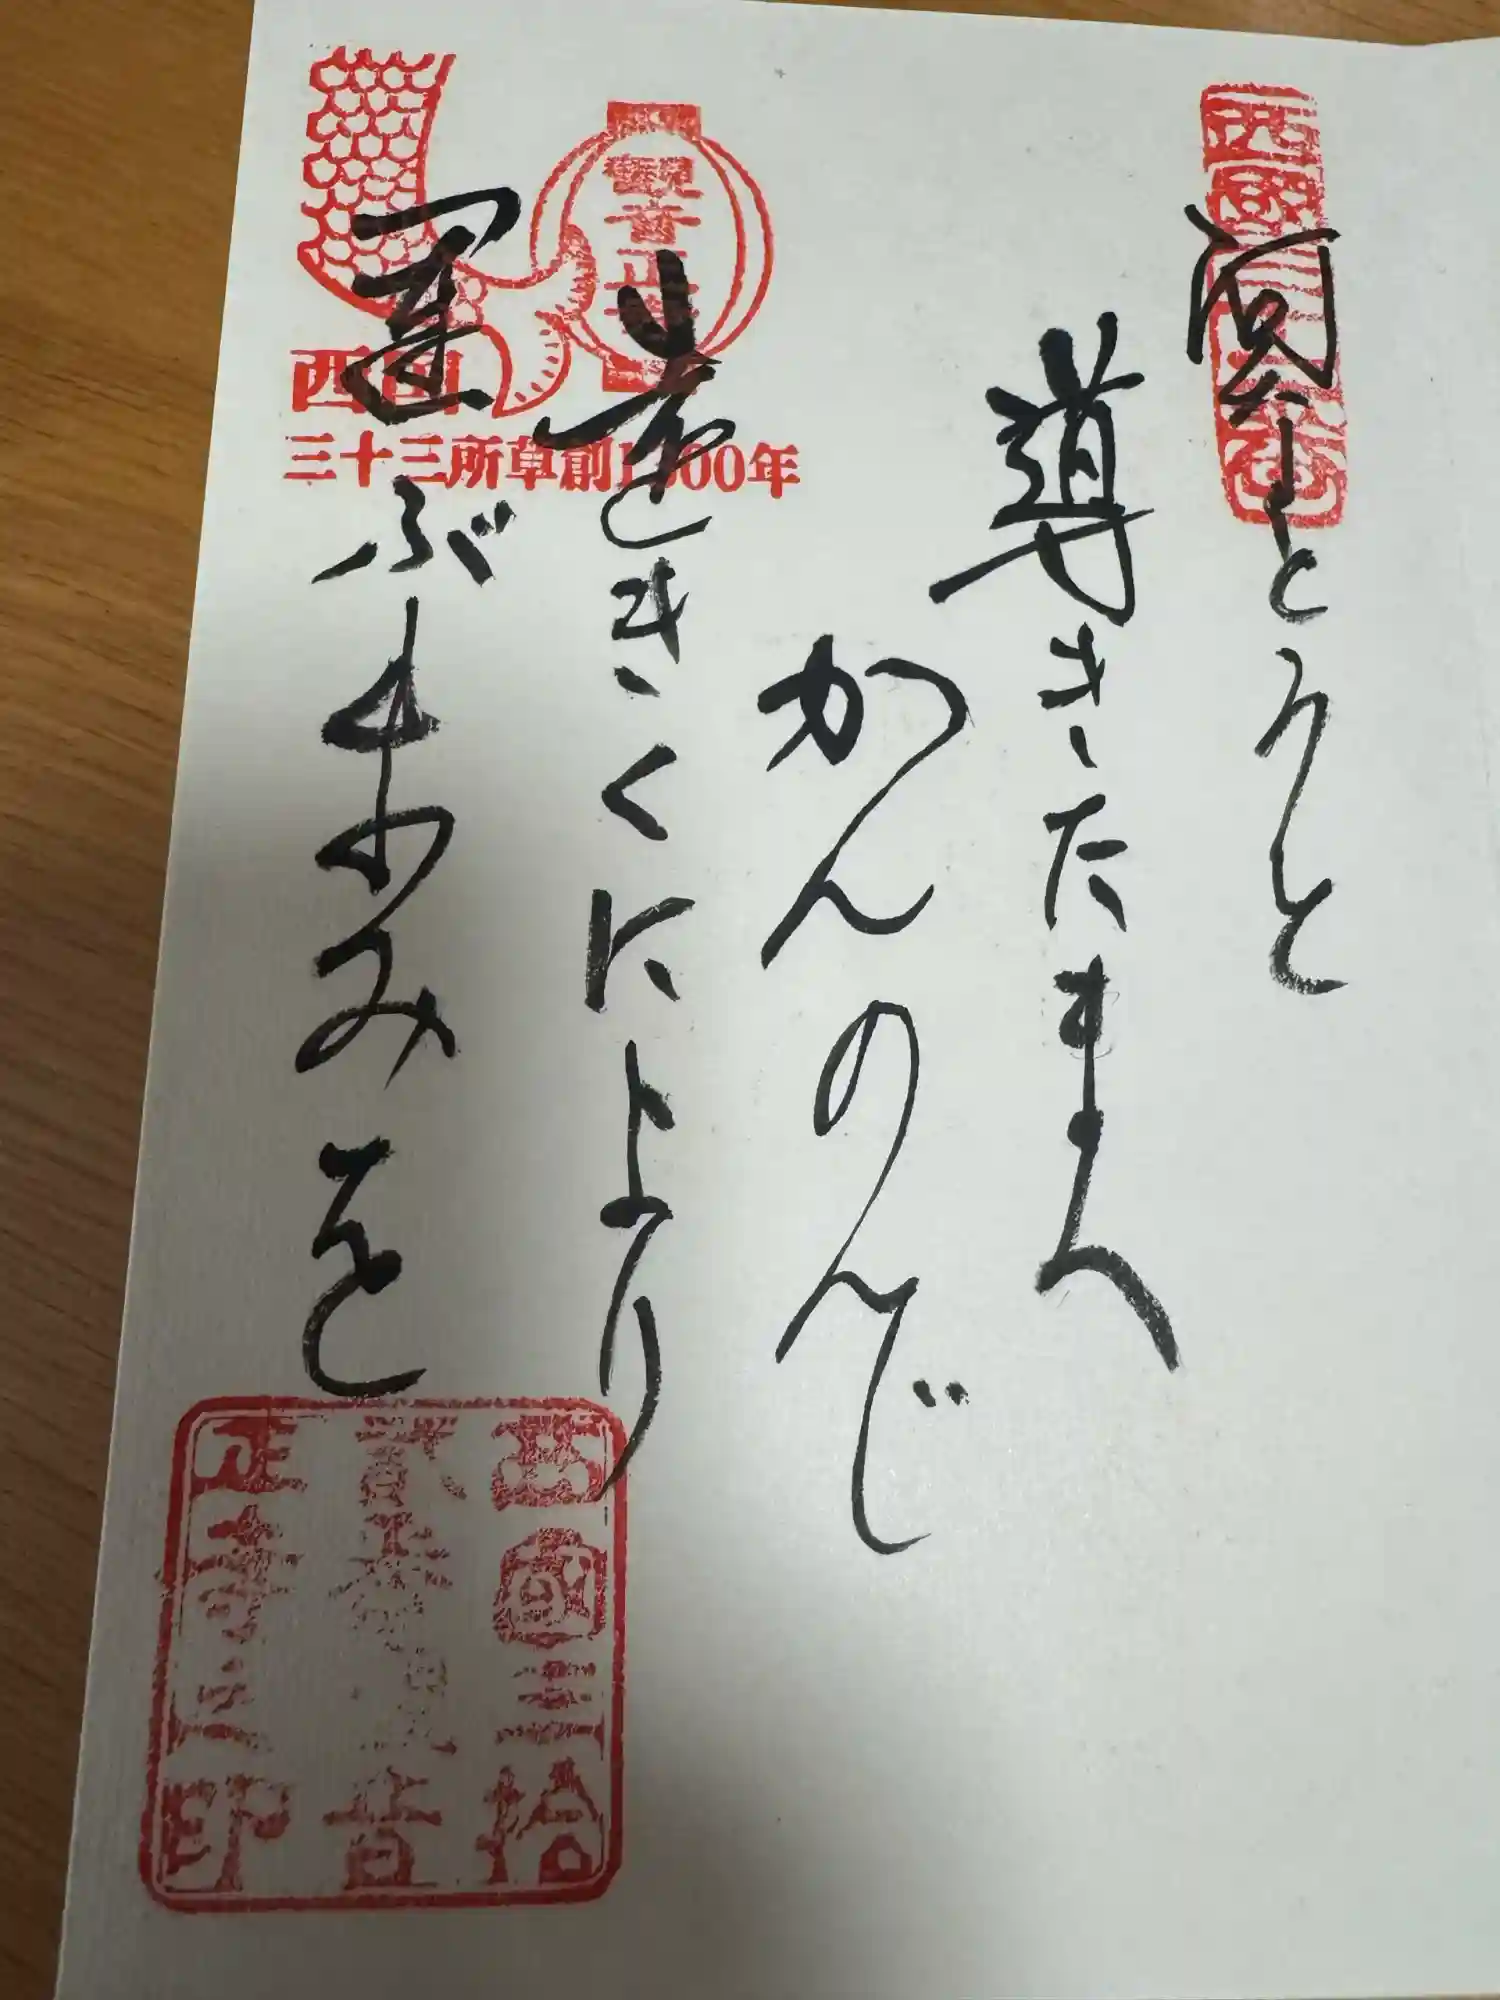 西國三十二番
阿なとうと
導きたまへ
かんのんじ
遠きくにより
運ぶあゆみを
観音正寺
西国
三十三所草創1300年
西國三拾
貳番観音
正寺之印